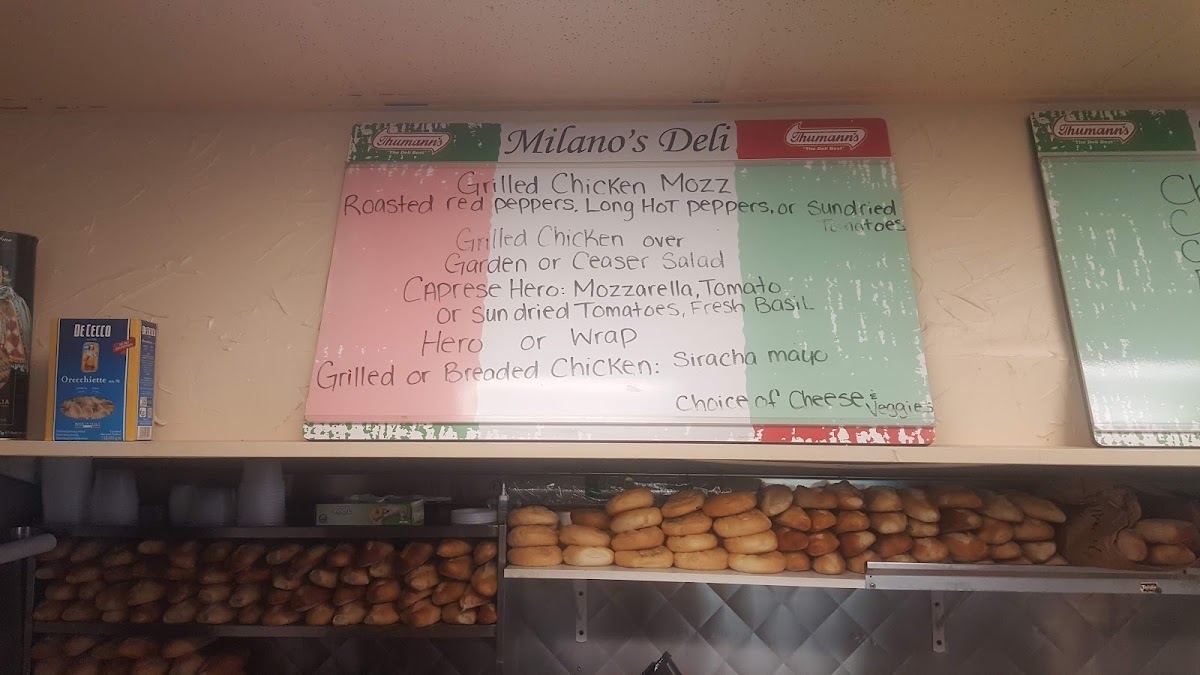 Thumann's
"The Deli Best"
Milano's Deli
Thumann's
"The Deli Best"
Grilled Chicken Mozz
Roasted red peppers, Long Hot peppers, or Sundried
Tomatoes
Grilled Chicken over
Garden or Ceaser Salad
Caprese Hero: Mozzarella, Tomato
or Sundried Tomatoes, Fresh Basil
Hero or Wrap
Grilled or Breaded Chicken: Siracha mayo
Choice of Cheese &
Veggies
Thumann's
"The Deli Best"
DE CECCO
DE CECCO
Orecchiette